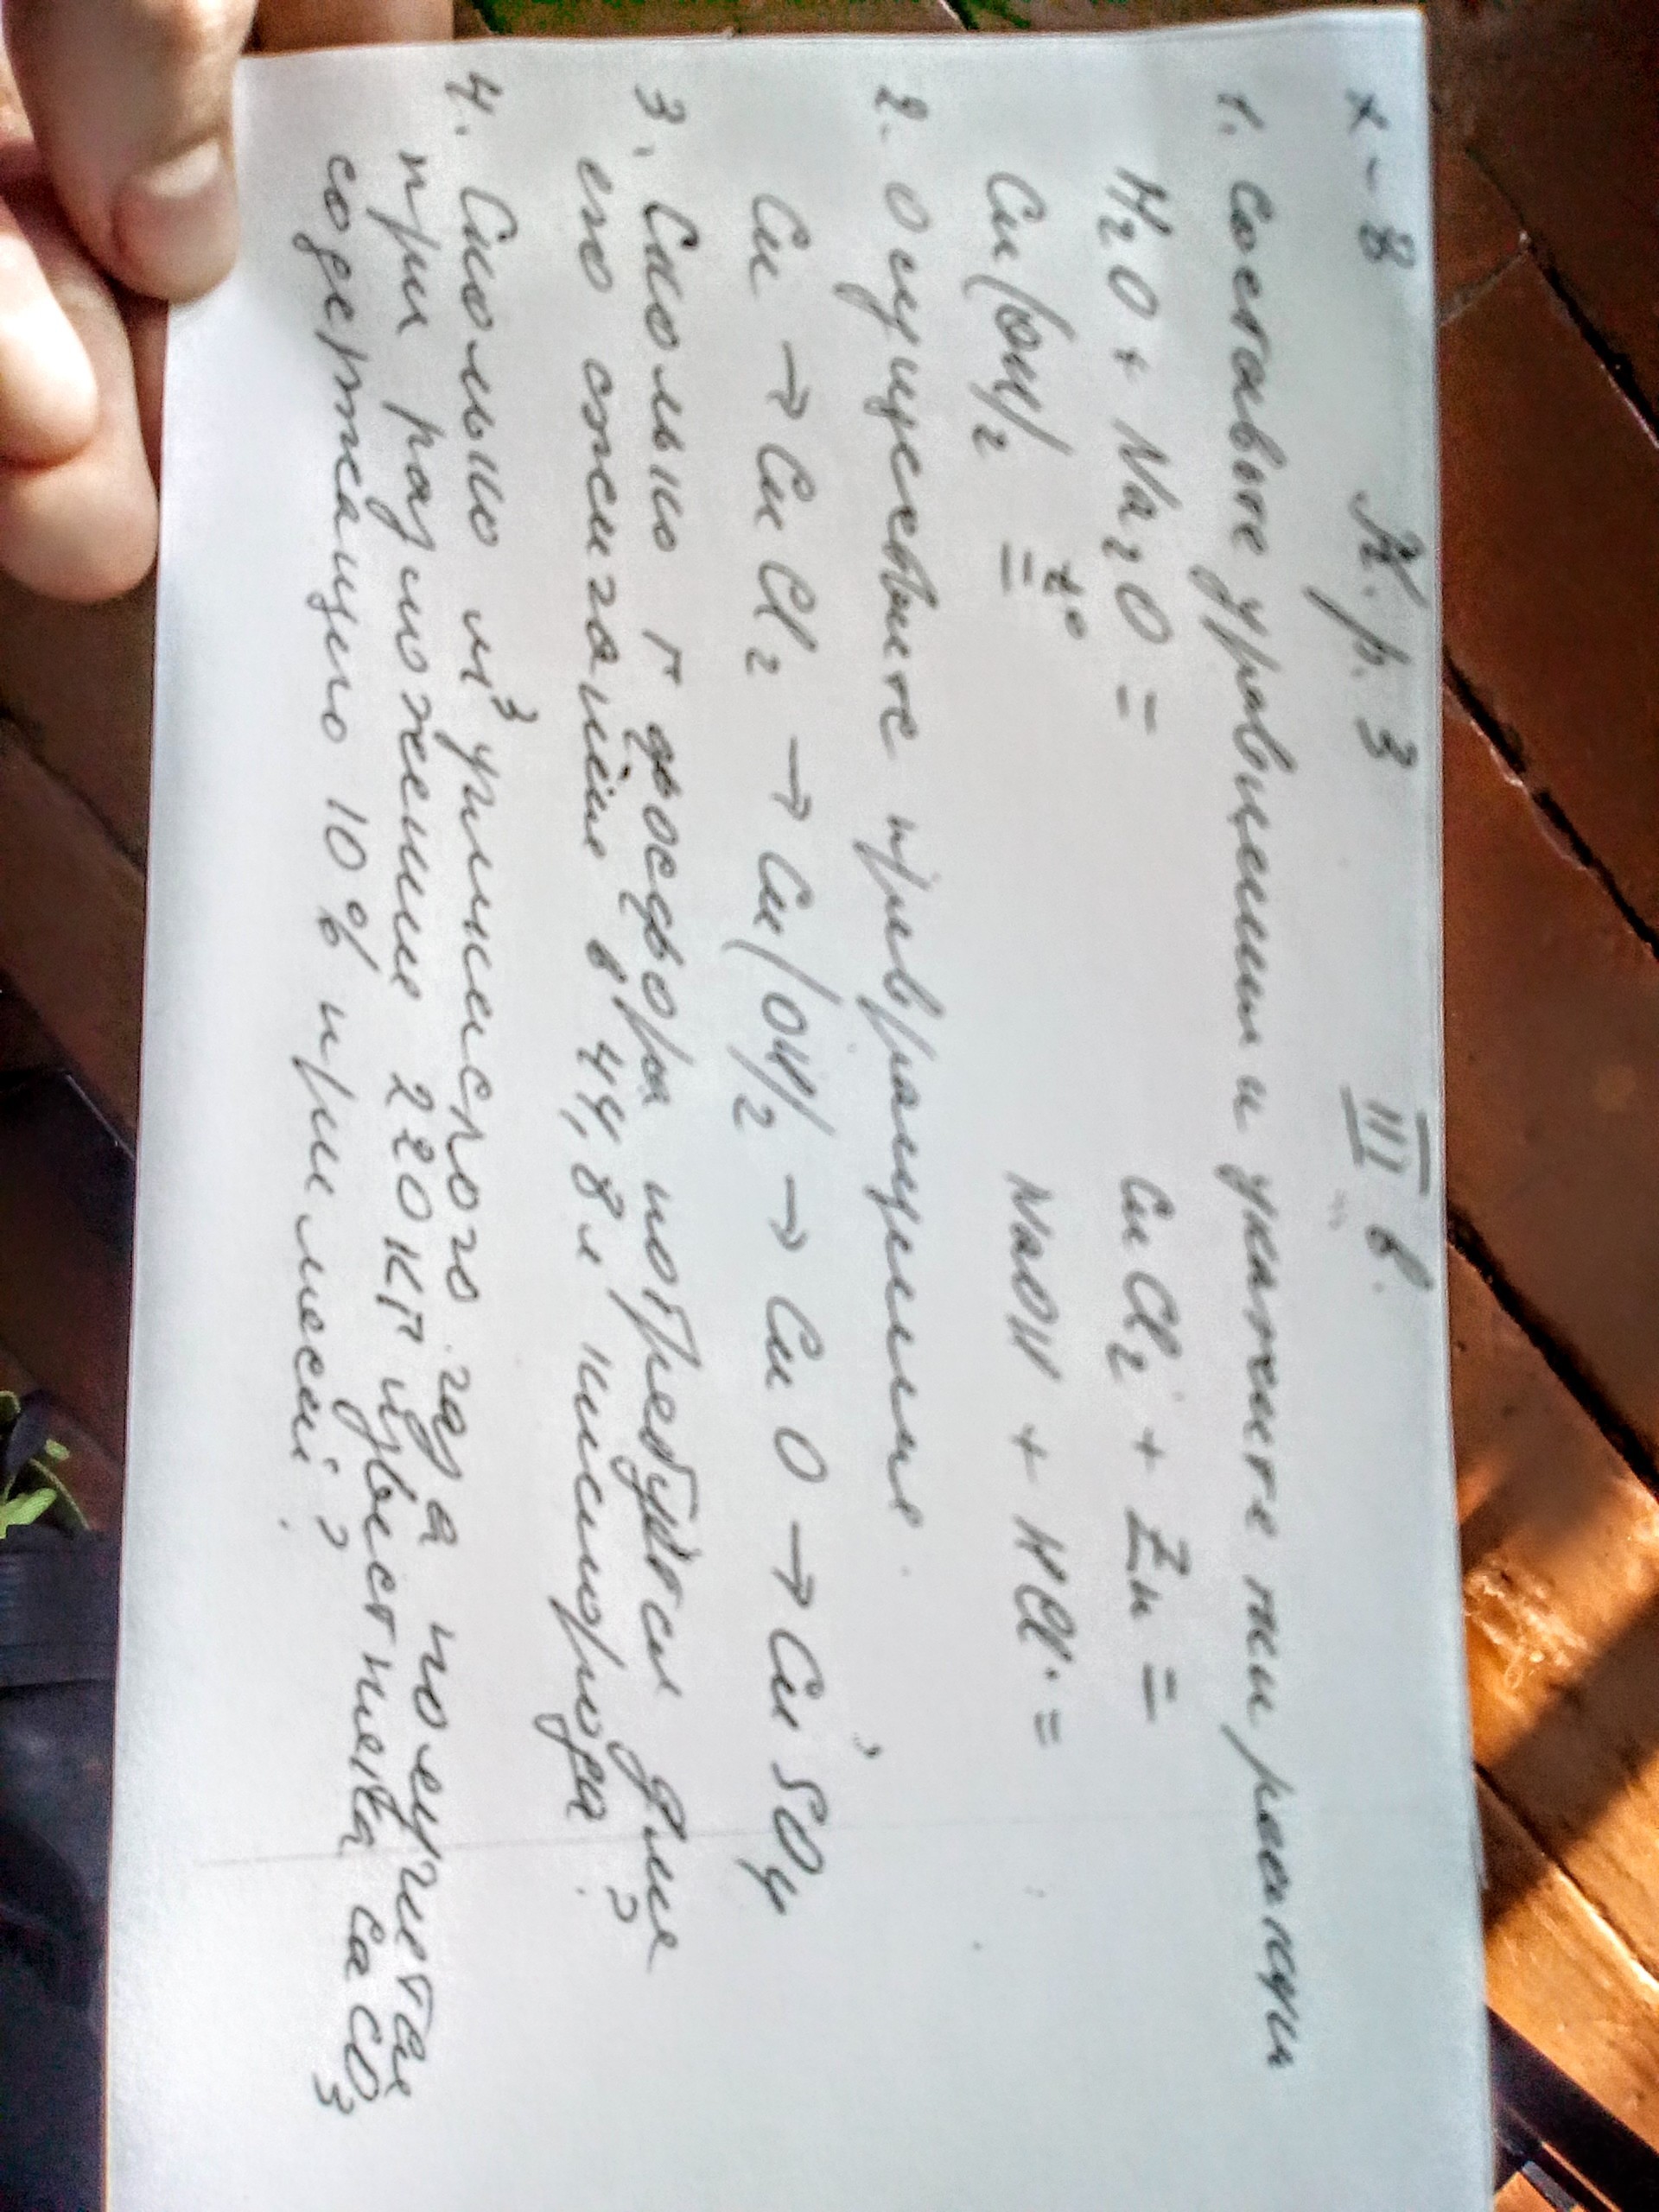 х-8 К.р. 3 III в.
1. Составьте уравнения и укажите тип реакции
H₂O + Na₂O = CuCl₂ + Zn =
Cu(OH)₂ t°= NaOH + HCl =
2. Осуществите превращения.
Cu → CuCl₂ → Cu(OH)₂ → CuO → CuSO₄
3. Сколько г фосфора потребуется для
его сжигания в 44,8 л кислорода?
4. Сколько м³ углекислого газа получится
при разложении 220 кг известняка CaCO₃
содержащего 10% примесей?